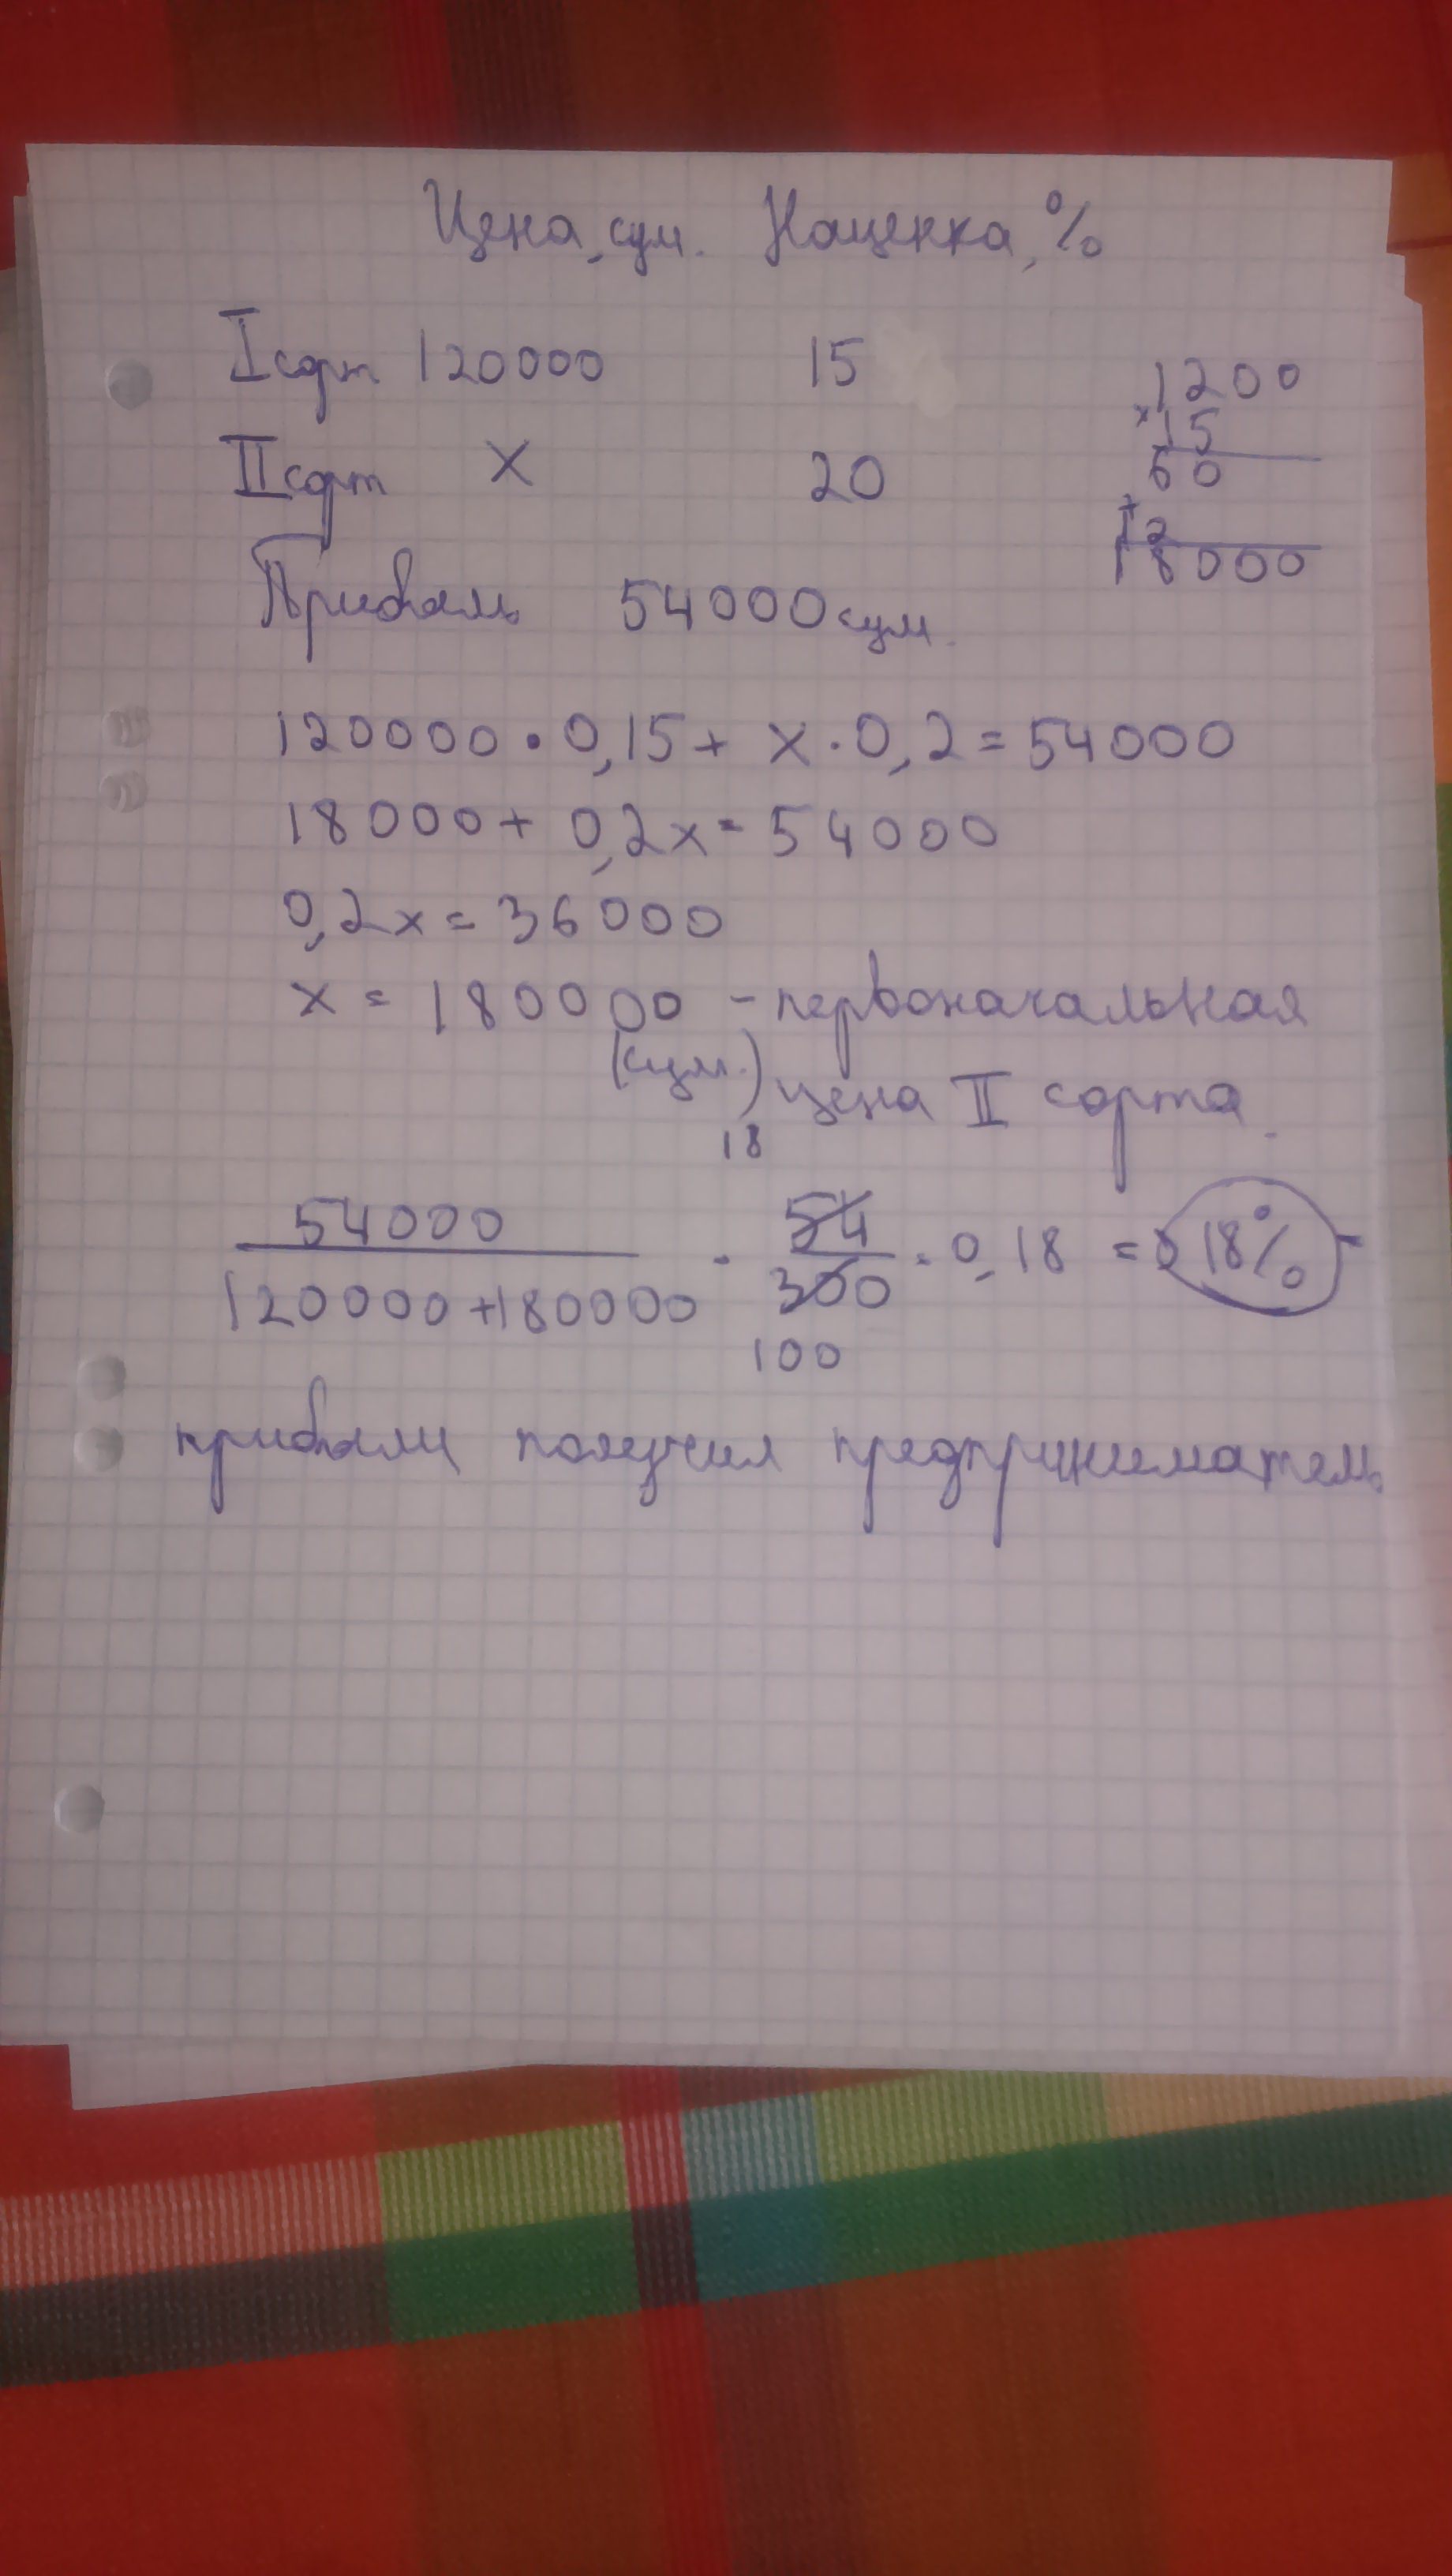 Цена, сум. Наценка, %
I сорт 120000 15
II сорт x 20
1200
× 15
60
+
12
18000
Прибыль 54000 сум.
120000 · 0,15 + x · 0,2 = 54000
18000 + 0,2x = 54000
0,2x = 36000
x = 180000 – первоначальная
(сум.) цена II сорта.
18
54000 / 120000 + 180000 = 54 / 300 = 0,18 = 18% –
100
прибыли получил предприниматель